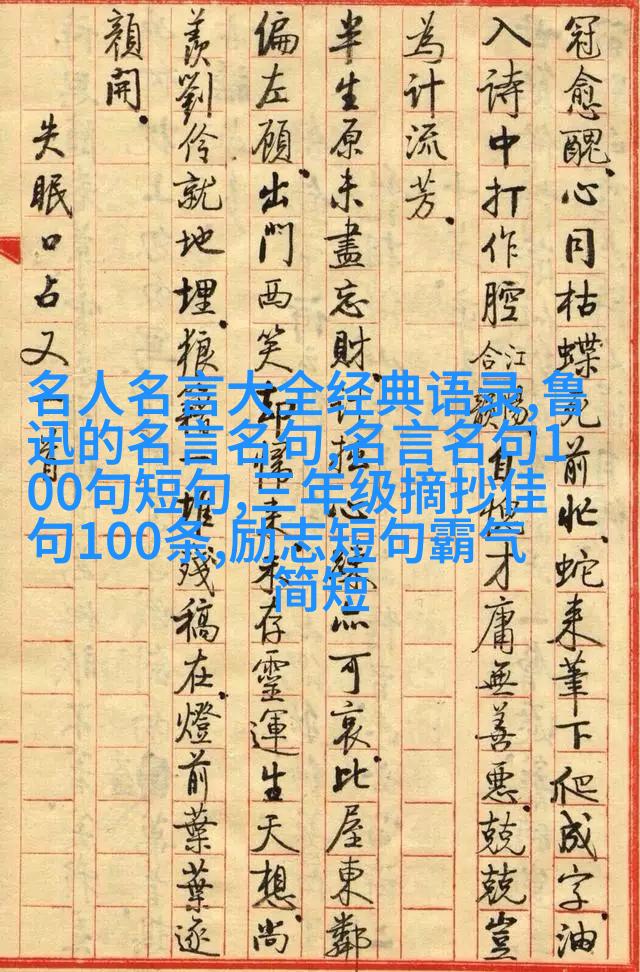 冠愈醜。心同枯蝶前忙、蛇来筆下爬成字、油
入诗中打作腔 江陽合韻 自愧才庸無善惡。兢兢豈
為计流芳。
半生原未盡忘财、计拙心可哀。比屋東鄰
偏左顧、出門西笑却歸来。未存靈運生天想、尚
羨劉伶就地埋。狼籍一堆殘稿在、燈前葉葉逐
顏開。
失眠口占又一首
名人名言大全经典语录,鲁
迅的名言名句,名言名句1
00句短句,三年级摘抄佳
句100条,励志短句霸气
简短